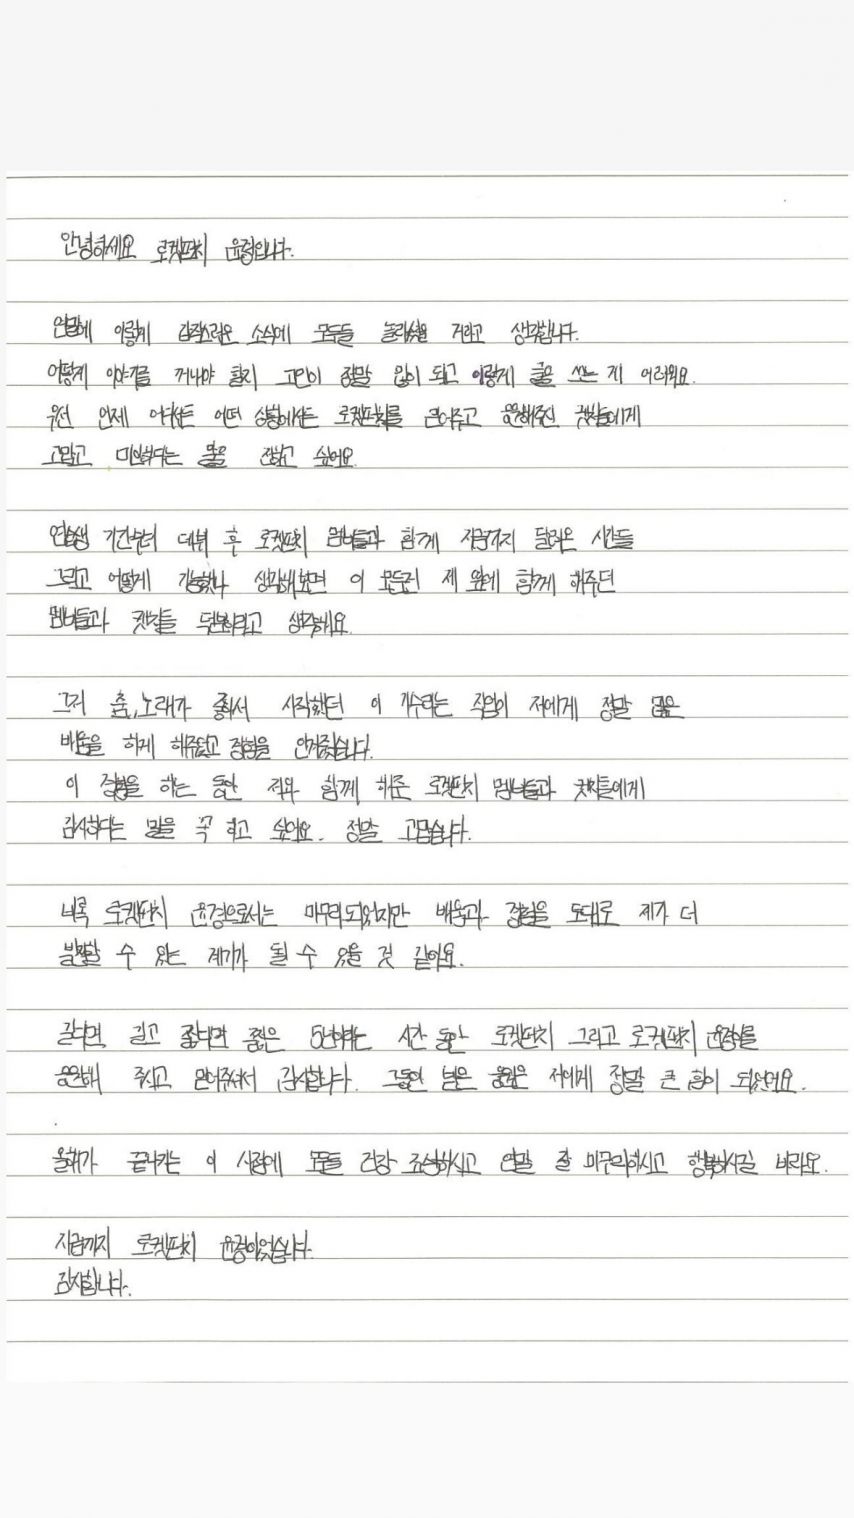 안녕하세요 로켓펀치 윤경입니다.
연말에 이렇게 갑작스러운 소식에 모두들 놀라셨을 거라고 생각합니다.
어떻게 이야기를 꺼내야 할지 고민이 정말 많이 되고 이렇게 글을 쓰는 게 어려워요.
우선 언제 어디서든 어떤 상황에서든 로켓펀치를 믿어주고 응원해주신 켓치들에게
고맙고 미안하다는 말을 전하고 싶어요.
연습생 기간부터 데뷔 후 로켓펀치 멤버들과 함께 지금까지 달려온 시간들
그리고 어떻게 가능했나 생각해보면 이 모든건 제 옆에 함께 해주던
멤버들과 켓치들 덕분이라고 생각해요.
그저 춤,노래가 좋아서 시작했던 이 가수라는 직업이 저에게 정말 많은
배움을 하게 해주었고 경험을 안겨줬습니다.
이 경험을 하는 동안 저와 함께 해준 로켓펀치 멤버들과 켓치들에게
감사하다는 말을 꼭 하고 싶어요. 정말 고맙습니다.
비록 로켓펀치 윤경으로서는 마무리되었지만 배움과 경험을 토대로 제가 더
발전할 수 있는 계기가 될 수 있을 것 같아요.
길다면 길고 짧다면 짧은 5년이라는 시간 동안 로켓펀치 그리고 로켓펀치 윤경이를
응원해 주시고 믿어주셔서 감사합니다. 그동안 받은 응원은 저에게 정말 큰 힘이 되었어요.
올해가 끝나가는 이 시점에 모두들 건강 조심하시고 연말 잘 마무리하시고 행복하시길 바라요.
지금까지 로켓펀치 윤경이었습니다.
감사합니다.